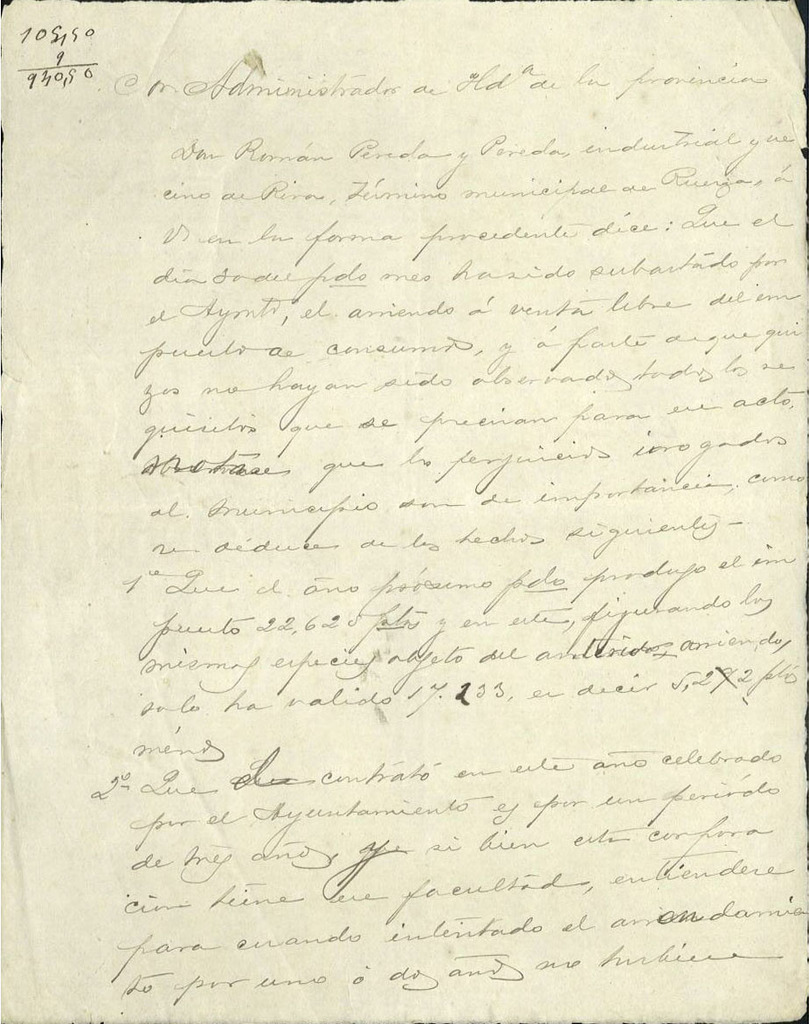 105,50
9
930,50
Sor Administrador de Hdª de la provincia
Don Román Pereda y Pereda, industrial y ve
cino de Riva, término municipal de Ruesga, á
V. en la forma procedente dice: Que el
día 30 del pdo mes ha sido subastado por
el Aynto, el arriendo á venta libre del im
puesto de consumos, y á parte de que qui
zas no hayan sido observados todos los re
quisitos que se precisan para ese acto,
que los perjuicios irrogados
al municipio son de importancia, como
se deduce de los hechos siguientes-
1º Que el año próximo pdo produjo el im
puesto 22,625 ptas y en este, figurando las
mismas especies objeto del arriendo,
solo ha valido 17.233, es decir 5,2 2 ptas
ménos
2º Que contrató en este año celebrado
por el Ayuntamiento es por un período
de tres años, si bien esta corpora
ción tiene ese facultad, entiendese
para cuando intentado el arrendamien
to por uno ó dos años no hubiese